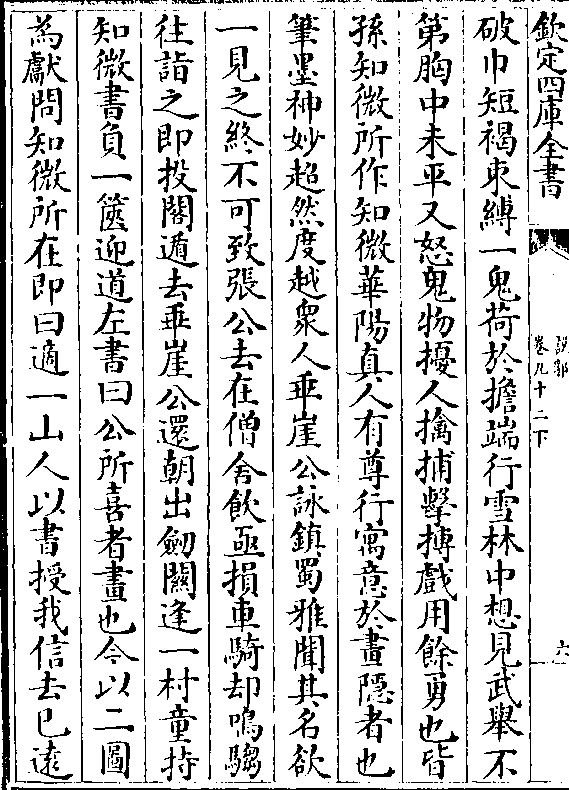 欽定四庫全書
說郛
卷九十二下
六
破巾短褐束縛一鬼荷於擔端行雪林中想見武舉不
第胸中未平又怒鬼物擾人擒捕擊搏戲用餘勇也皆
孫知微所作知微華陽真人有尊行寓意於畫隱者也
筆墨神妙超然度越衆人乖崖公詠鎮蜀雅聞其名欲
一見之終不可致張公去在僧舍飲亟損車騎却鳴騶
往詣之即投閣遁去乖崖公還朝出劒關逢一村童持
知微書負一篋迎道左書曰公所喜者畫也今以二圖
為獻問知微所在即曰適一山人以書授我信去已遠